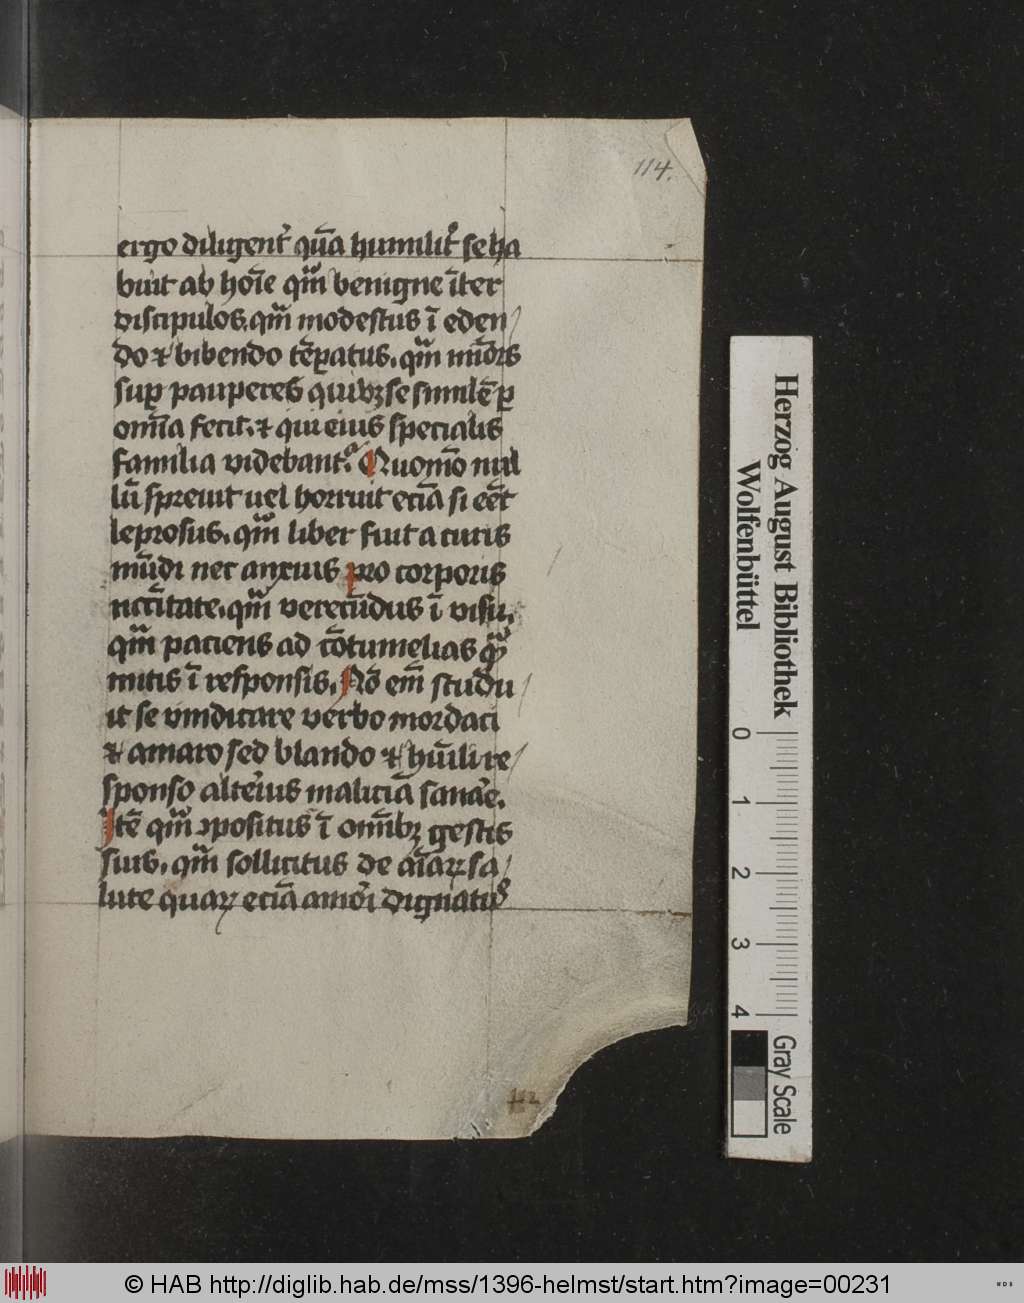 114.
ergo diligent᷑ qua᷑ humilit᷑ se ha
buit ab ho᷑ie qm̄ benigne ı̄ter
discipulos. qm̄ modestus ı̄ eden/
do ⁊ bibendo te᷑ꝑatus. qm̄
suꝑ pauperes quibꝫ se similē ꝑ
om̄ia fecit. ⁊ qui eius specialis
familia videbant᷑. Quomō nul
lū spreuit uel horruit eciā si eēt
leprosus. qm̄ liber fuit a curis
mūdi nec anxius pro corporis
nccītate. qm̄ verecūdus ı̄ visu.
qm̄ paciens ad cōtumelias qm̄
mitis ı̄ responsis. Nō em̄ studu/
it se vindicare verbo mordaci
⁊ amaro sed blando ⁊ hūili re/
sponso alteı᷑us maliciā sanaē.
Itē qm̄ ꝯpositus ı̄ om̄ibꝫ gestis
suis. qm̄ sollicitus de aı̄aꝝ sa/
lute quaꝝ eciā amoı᷑ dignatus
112
Herzog August Bibliothek
Wolfenbüttel
0 1 2 3 4
Gray Scale
© HAB http://diglib.hab.de/mss/1396-helmst/start.htm?image=00231
WDB